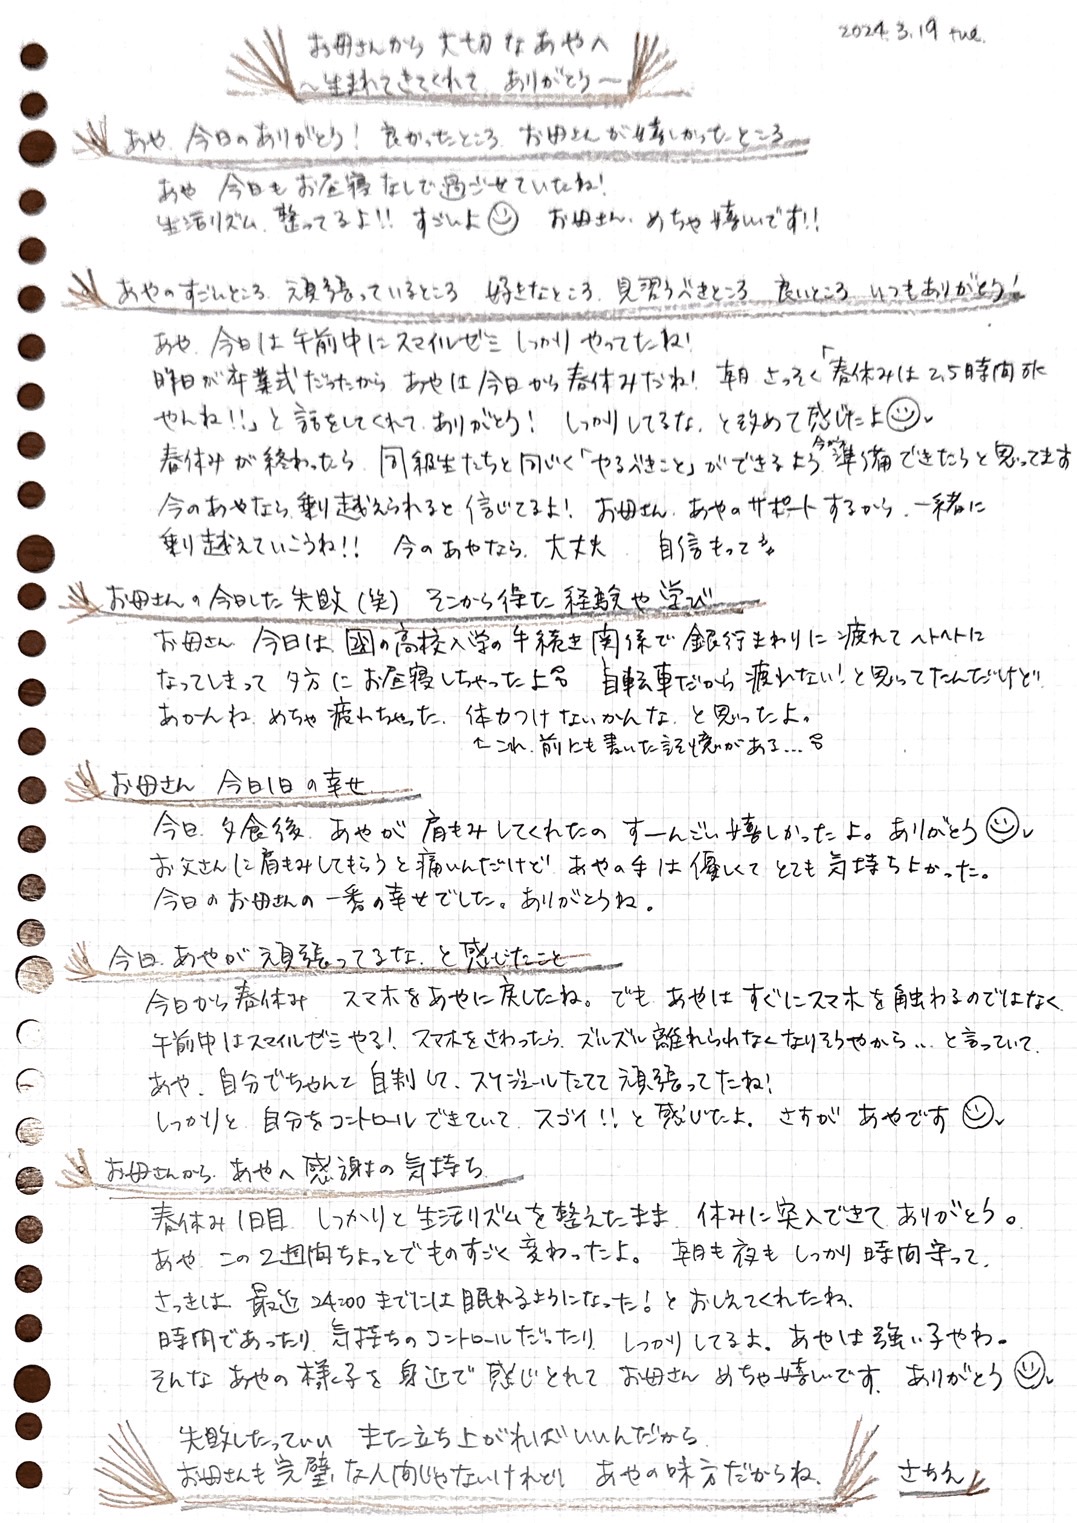 2024.3.19 tue.
お母さんから 大切なあやへ
〜生まれてきてくれて ありがとう〜
あや、今日のありがとう! 良かったところ、お母さんが嬉しかったところ
あや 今日もお昼寝なしで過ごせていたね!
生活リズム、整ってるよ!! すごいよ☺ お母さん、めちゃ嬉しいです!!
あやのすごいところ、頑張っているところ 好きなところ、見習うべきところ 良いところ いつもありがとう!
あや、今日は午前中にスマイルゼミ しっかり やってたね!
昨日が卒業式だったから あやは今日から春休みだね! 朝、さっそく「春休みは2.5時間 水
やんね!!」と話をしてくれて、ありがとう! しっかりしてるな、と改めて感じたよ☺
春休みが終わったら、同級生たちと同じく「やるべきこと」ができるよう 今から 準備できたらと思ってます
今のあやなら、乗り越えられると信じてるよ! お母さん、あやのサポートするから、一緒に
乗り越えていこうね!! 今のあやなら、大丈夫 自信もって
お母さんの今日した失敗(笑) そこから得た経験や学び
お母さん 今日は、国の高校入学の手続き関係で 銀行まわりに疲れてヘトヘトに
なってしまって 夕方に お昼寝しちゃったよ 自転車だから疲れない!と思ってたんだけど
あかんね、めちゃ疲れちゃった、体力つけないかんな、と思ったよ。
↑これ、前にも書いた記憶がある...
お母さん 今日1日の幸せ
今日、夕食後、あやが肩もみしてくれたの すーんごい嬉しかったよ。ありがとう☺
お父さんに肩もみしてもらうと痛いんだけど あやの手は優しくて とても気持ちよかった。
今日のお母さんの一番の幸せでした。ありがとうね。
今日、あやが頑張ってるな、と感じたこと
今日から春休み スマホをあやに戻したね。でも あやはすぐにスマホを触わるのではなく
午前中はスマイルゼミやる! スマホをさわったら、ズルズル離れられなくなりそうやから... と言っていて、
あや、自分でちゃんと自制して、スケジュールたてて頑張ってたね!
しっかりと、自分をコントロールできていて、スゴイ!!と感じたよ。さすが あやです☺
お母さんから、あやへ感謝の気持ち
春休み1日目 しっかりと生活リズムを整えたまま、休みに突入できてありがとう。
あや、この2週間ちょっとでものすごく変わったよ。朝も夜も しっかり時間守って、
さっきは、最近24:00までには眠れるようになった!と おしえてくれたね、
時間であったり、気持ちのコントロールだったり、しっかりしてるよ。あやは強い子やわ。
そんなあやの様子を身近で感じとれて お母さん めちゃ嬉しいです、ありがとう☺
失敗したっていい また立ち上がればいいんだから、
お母さんも完璧な人間じゃないけれど! あやの味方だからね、 さちえ